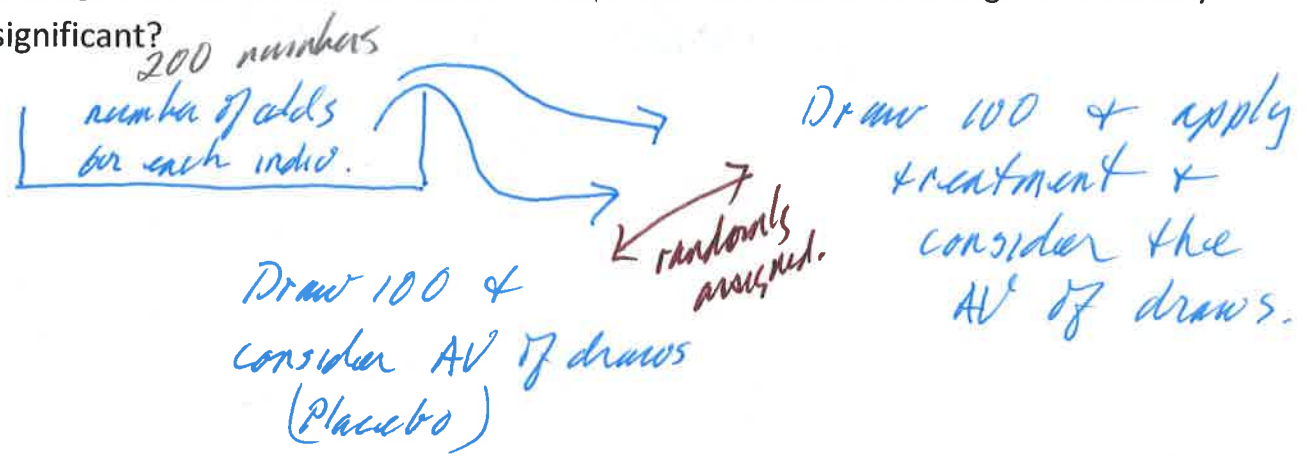 significant?
200 numbers
number of colds
for each indiv.
Draw 100 & apply
treatment &
consider the
AV of draws.
randomly
assigned.
Draw 100 &
consider AV of draws
(Placebo)